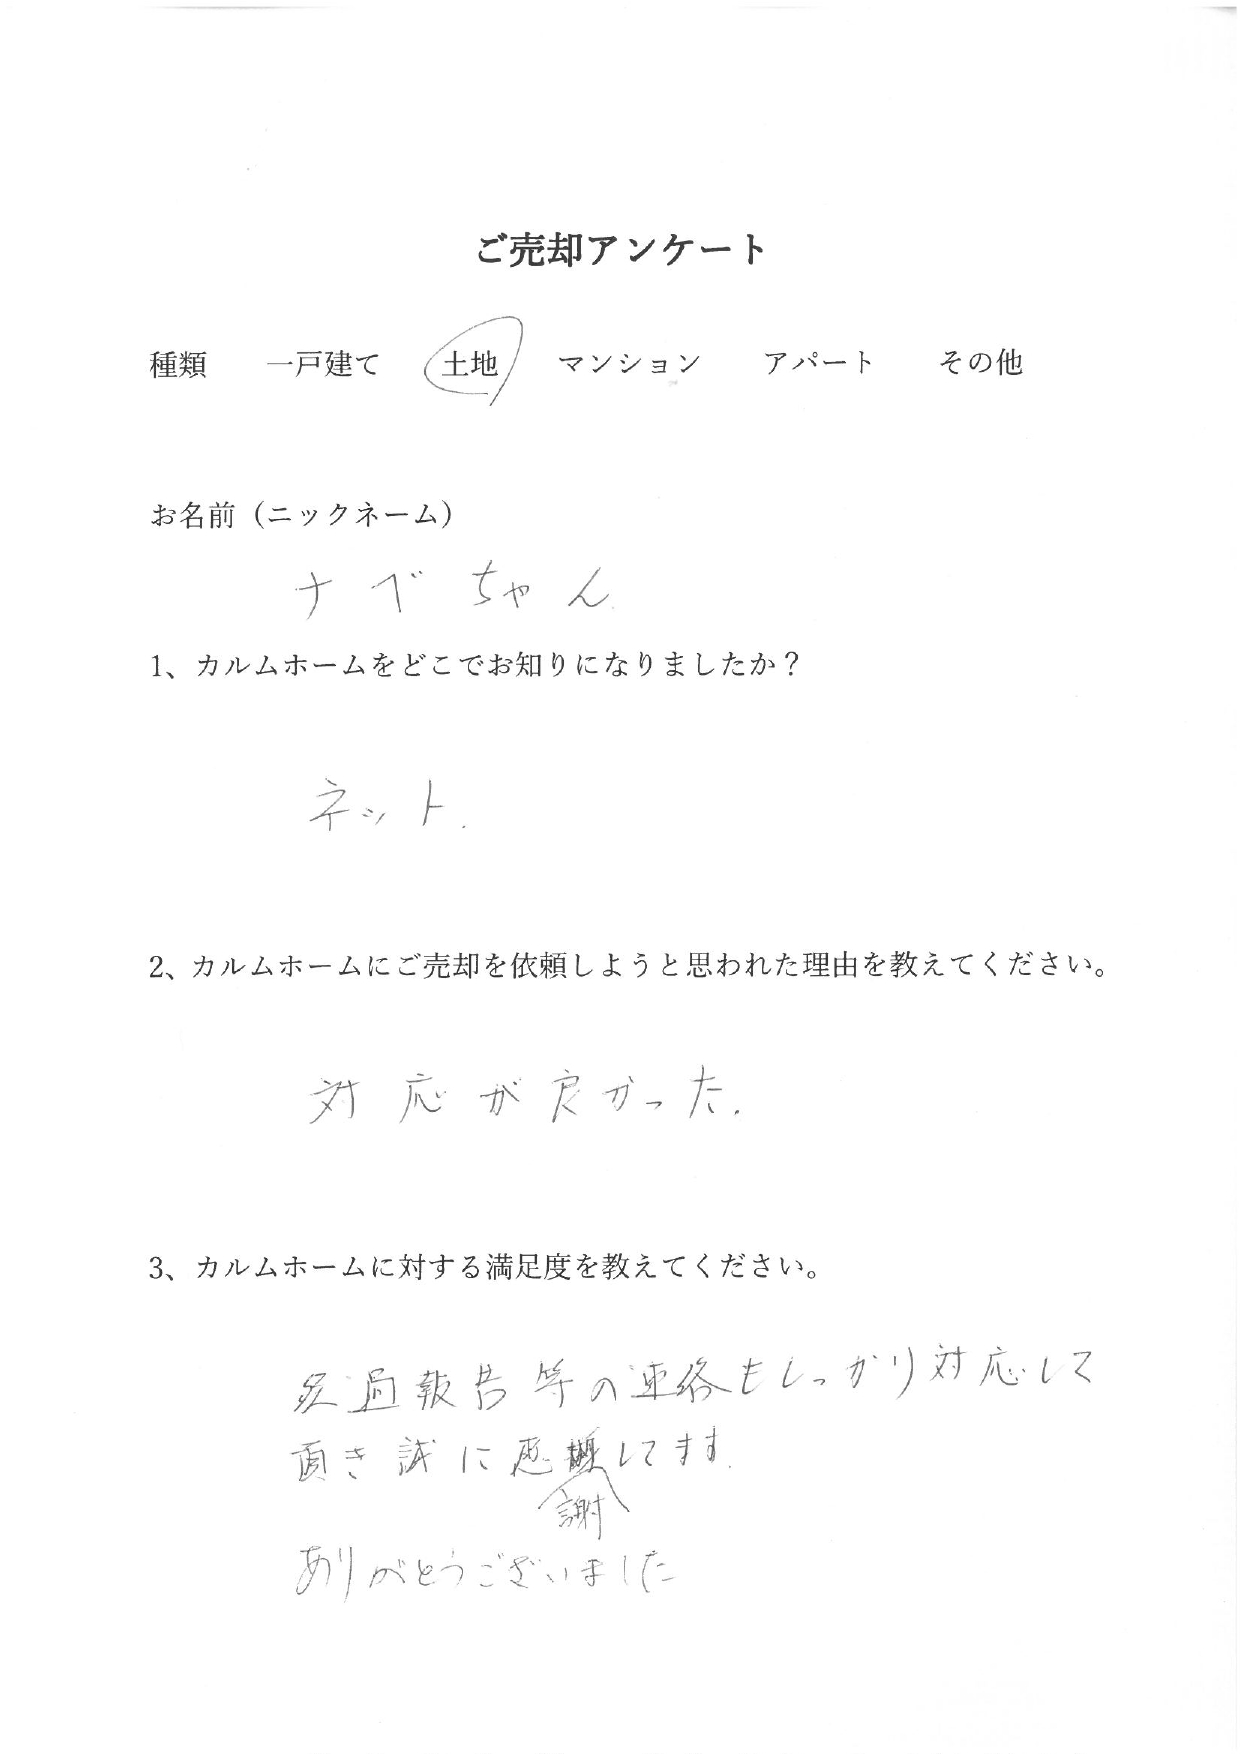 ご売却アンケート
種類 一戸建て 土地 マンション アパート その他
お名前（ニックネーム）
ナベちゃん
1、カルムホームをどこでお知りになりましたか？
ネット.
2、カルムホームにご売却を依頼しようと思われた理由を教えてください。
対応が良かった.
3、カルムホームに対する満足度を教えてください。
経過報告等の連絡もしっかり対応して
頂き誠に感謝してます.
ありがとうございました